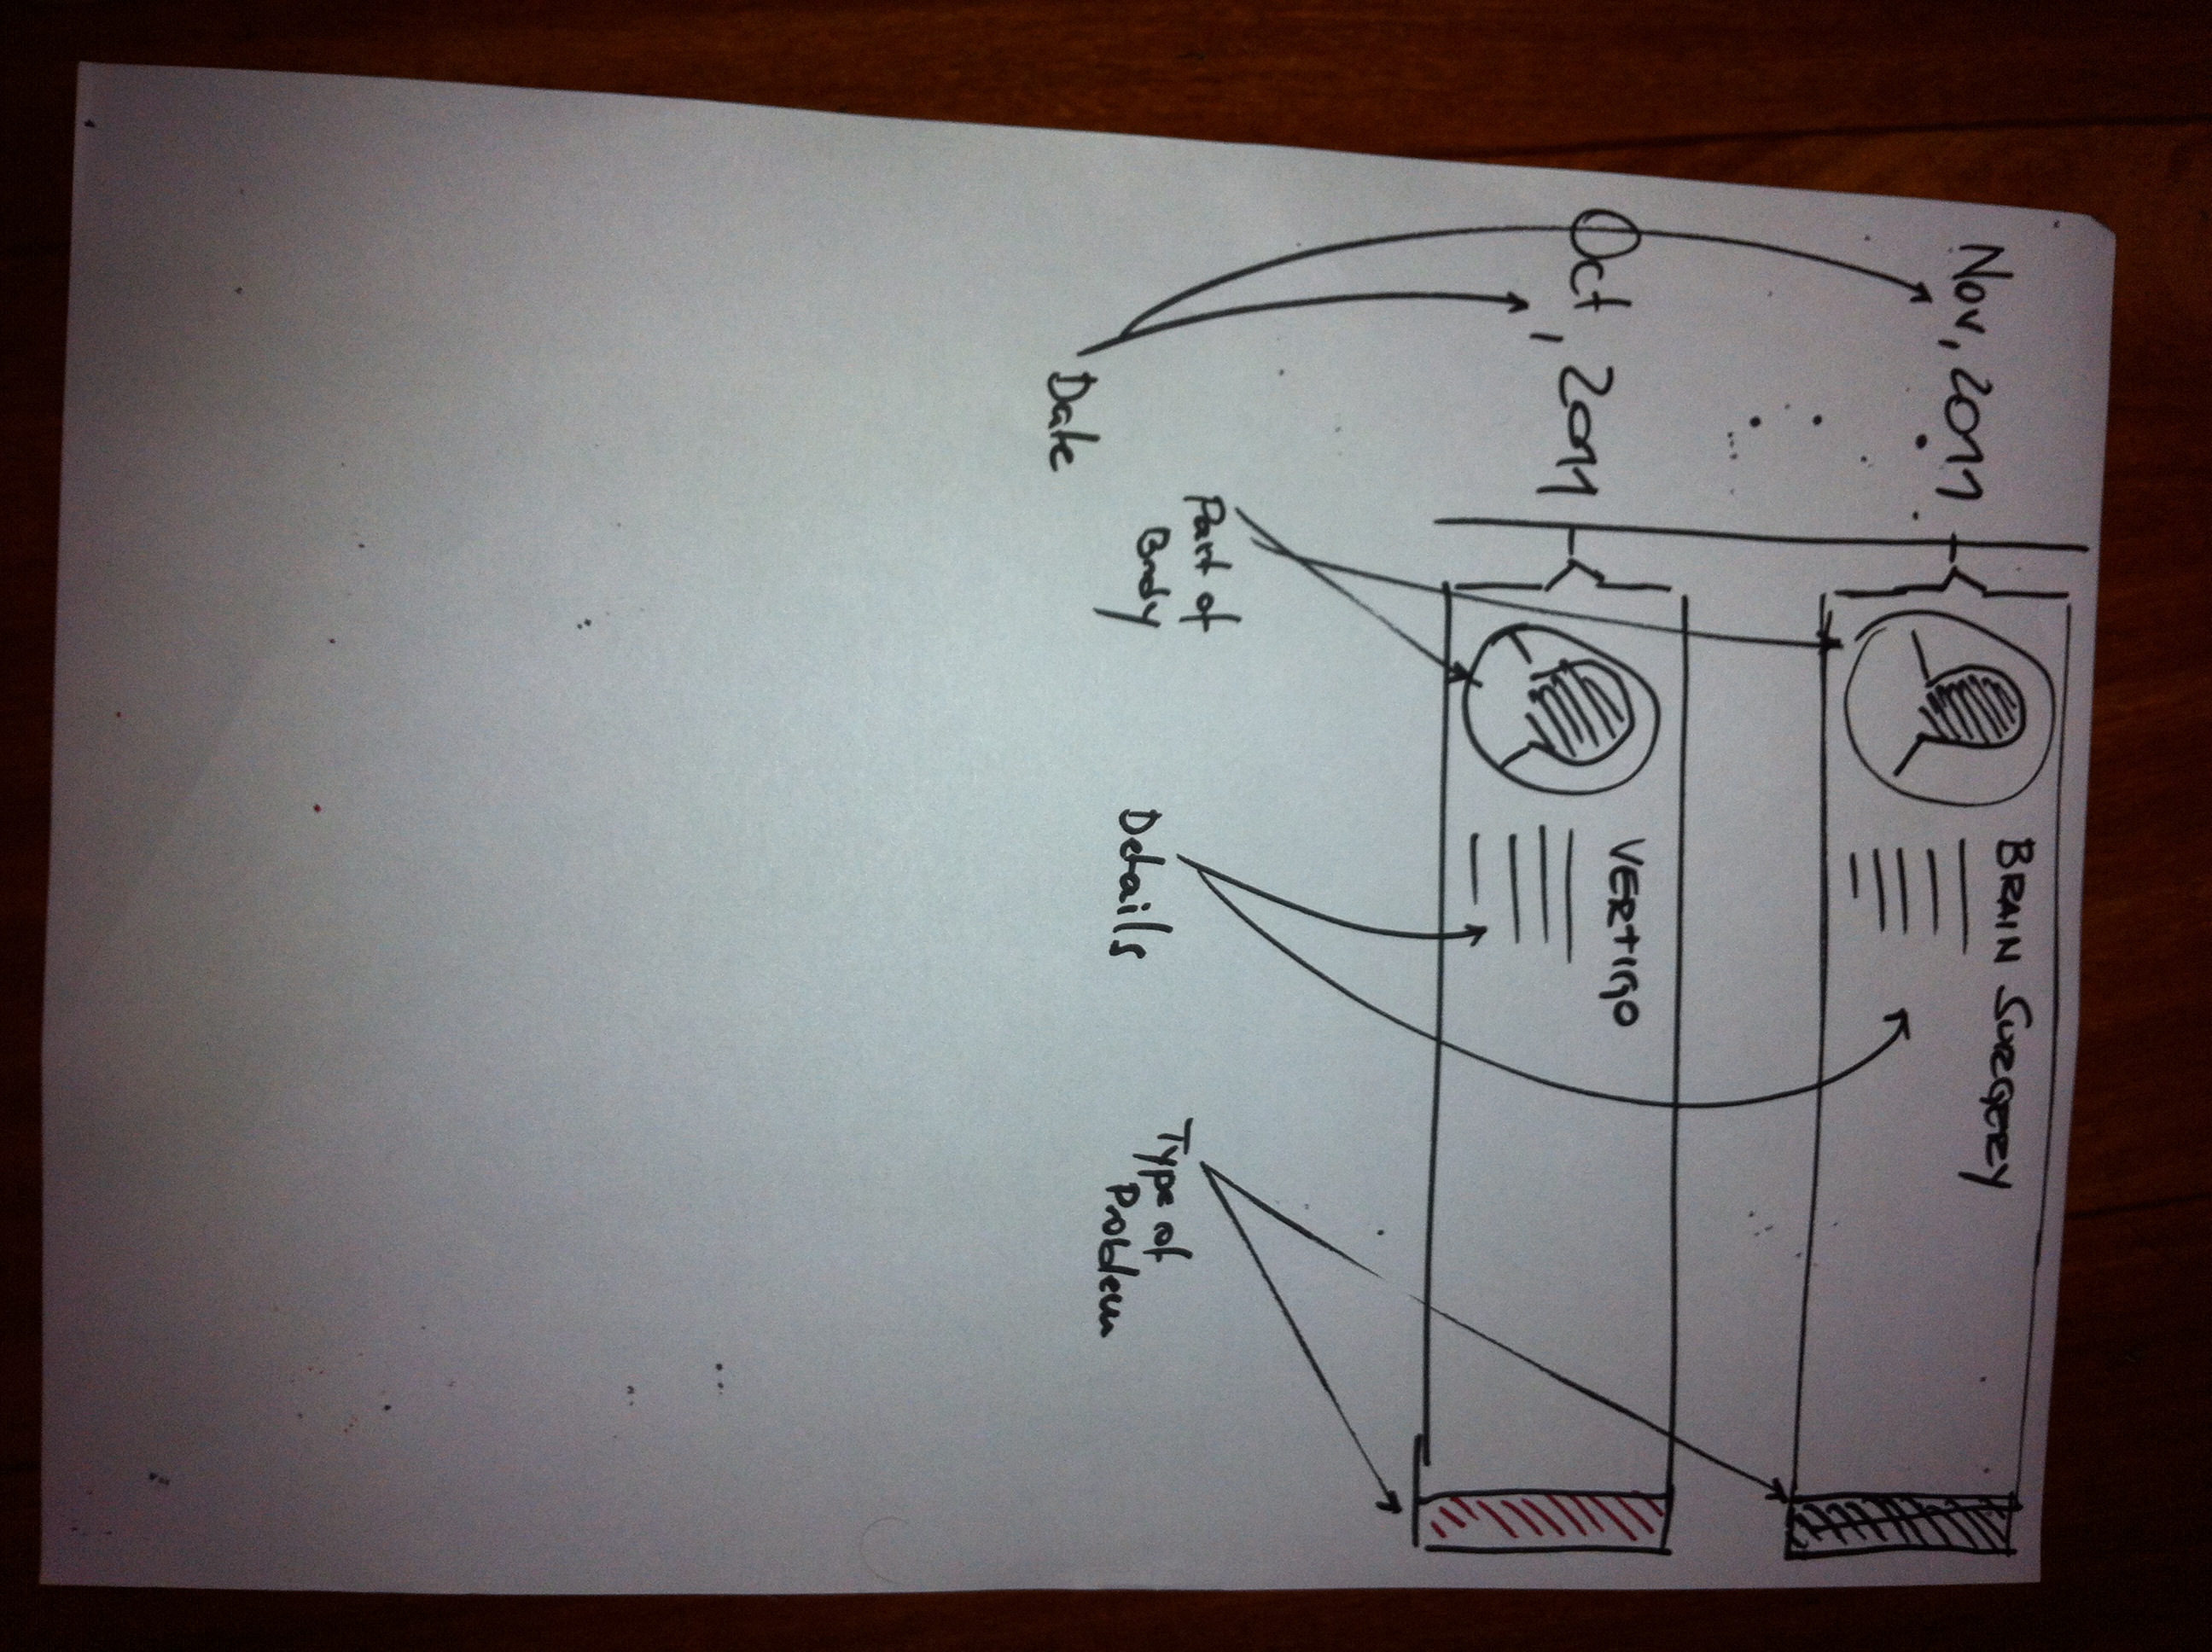 Nov, 2011
BRAIN SURGERY
Oct, 2011
VERTIGO
Date
Part of
Body
Details
Type of
Problem